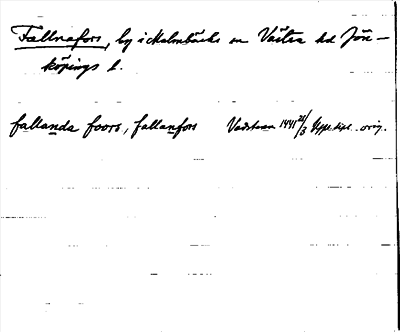 Fallnafors, by i Malmbäcks sn Västra hd Jön-
köpings l.
fallanda foors, fallanfors Vadstena 1441 28/3 Uppl. dipl. orig.